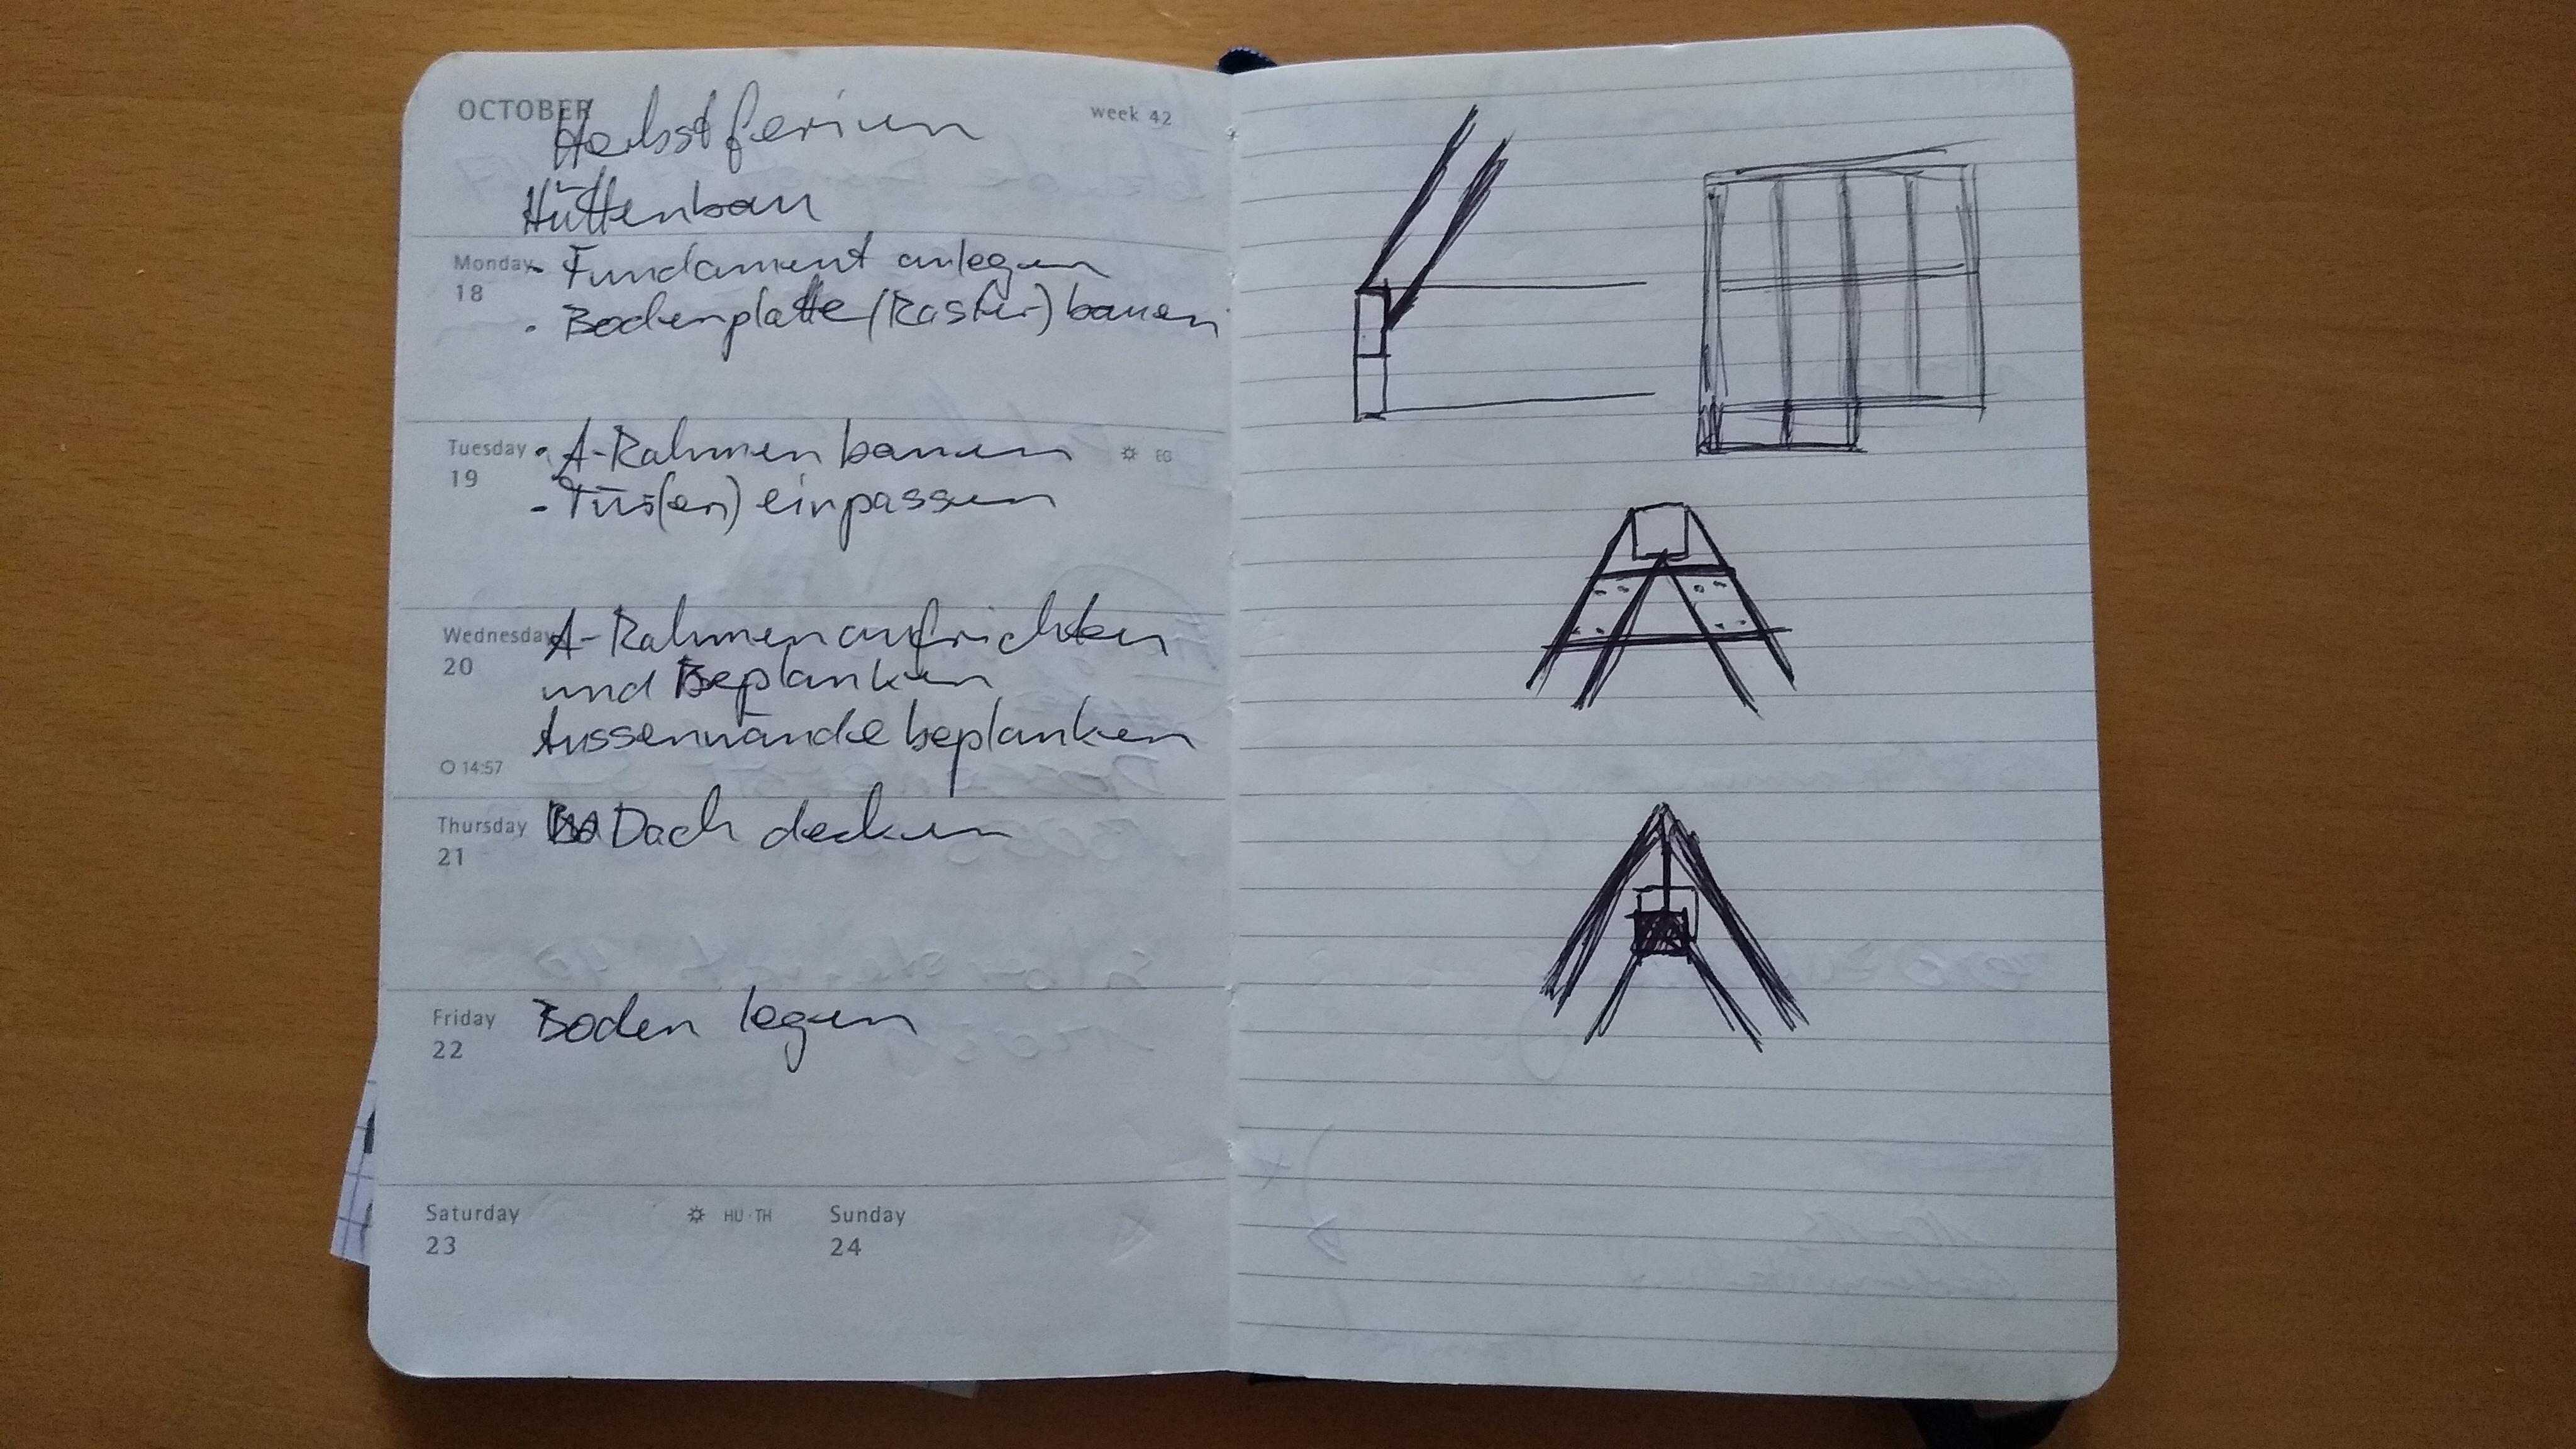 OCTOBER
week 42
Herbstferien
Hüttenbau
Monday
18
- Fundament anlegen
- Bodenplatte (Raster) bauen
Tuesday
19
EG
- A-Rahmen bauen
- Tür(en) einpassen
Wednesday
20
14:57
A-Rahmen aufrichten
und Beplanken
Aussenwände beplanken
Thursday
21
Dach decken
Friday
22
Boden legen
Saturday
23
HU · TH
Sunday
24